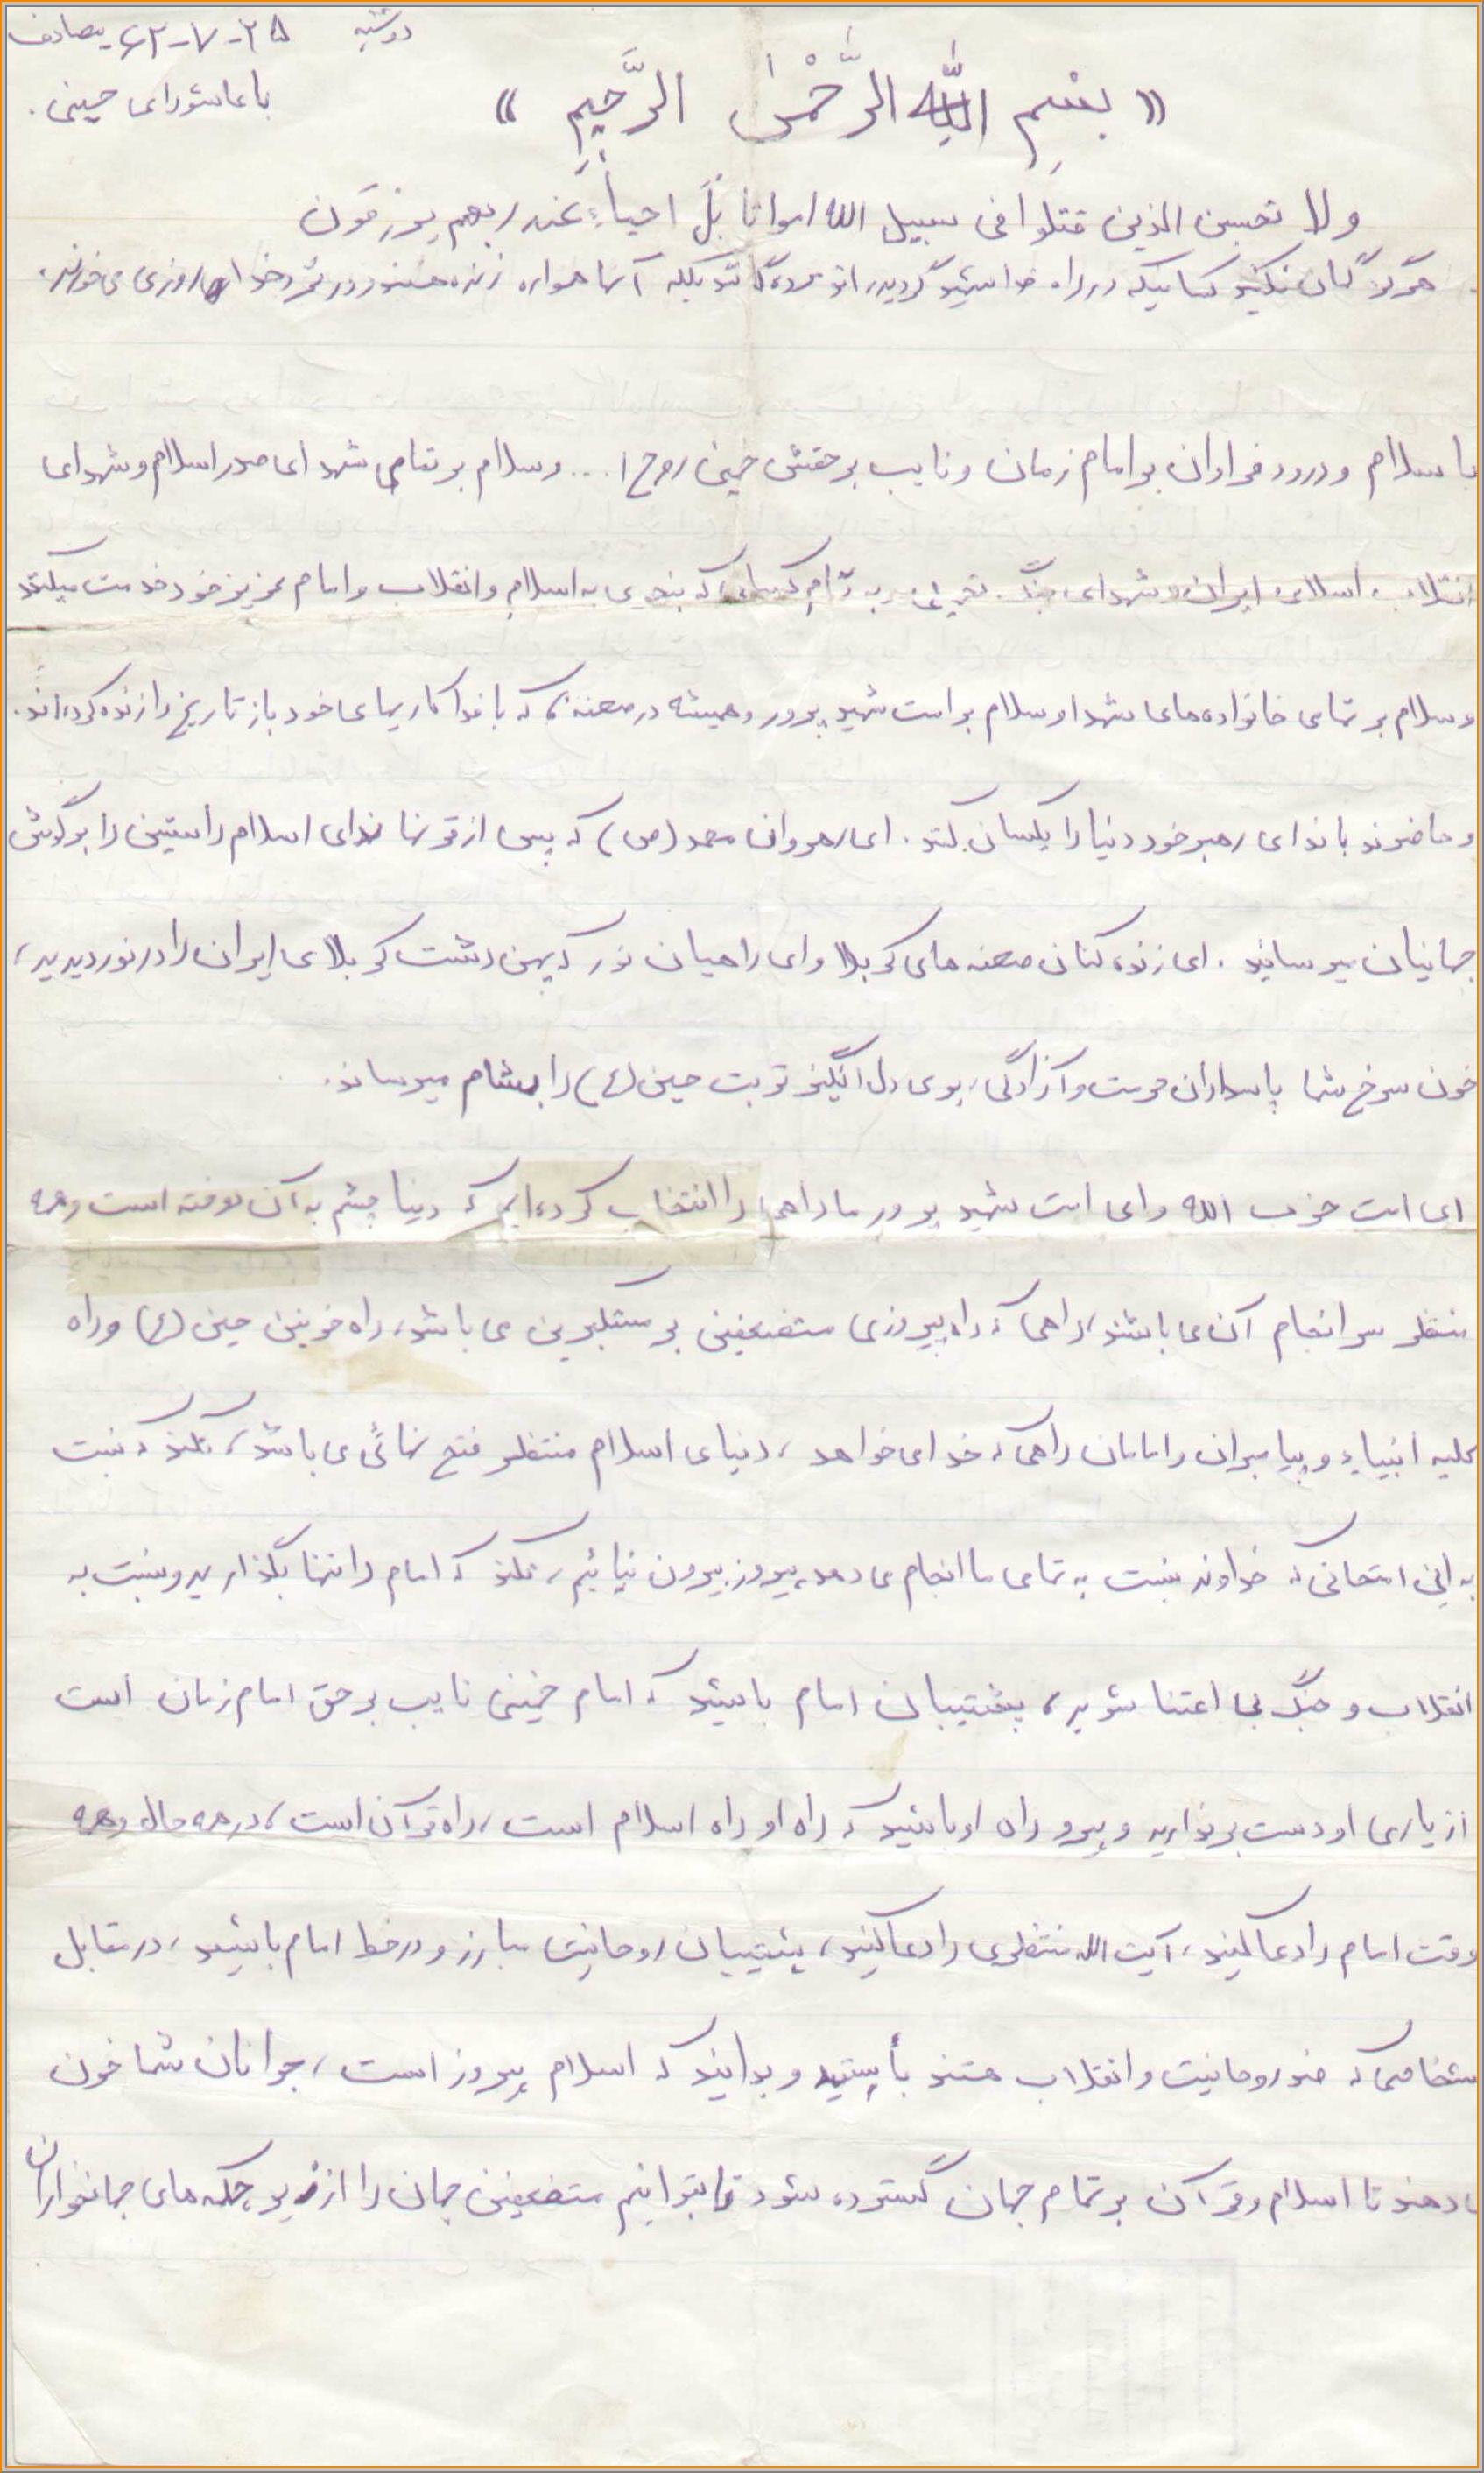 دوشنبه ۶۲-۷-۲۵ مصادف
با عاشورای حسینی.
« بِسْمِ اللّهِ الرَّحْمٰنِ الرَّحِیمِ »
ولا تحسبن الذین قتلوا فی سبیل الله امواتا بَلْ احیاءٌ عند ربهم یرزقون
هرگز گمان نکنید کسانیکه در راه خدا شهید گردیدند مردگانند بلکه آنها همواره زنده هستند و در نزد خدا روزی می‌خورند.
با سلام و درود فراوان بر امام زمان و نایب بر حقش خمینی روح ا... و سلام بر تمامی شهدای صدر اسلام و شهدای
انقلاب اسلامی ایران و شهدای جنگ به تمام کسانی که بنحوی به اسلام و انقلاب و امام عزیز خود خدمت میکنند
و سلام بر تمامی خانواده‌های شهدا و سلام بر امت شهید پرور و همیشه در صحنه، که با فداکاریهای خود باز تاریخ را زنده کرده‌اند.
و حاضرند با ندای رهبر خود دنیا را یکسان کنند. ای رهروان محمد (ص) که پس از قرنها ندای اسلام راستین را بر گوش
جهانیان میرسانید. ای زنده کنان صحنه‌های کربلا و ای راهیان نور که پهن دشت کربلای ایران را در نوردیدید،
خون سرخ شما پاسداران حرمت و آزادگی، بوی دل انگیز تربت حسین (ع) را بمشام میرساند.
ای امت حزب الله و ای امت شهید پرور ما راهی را انتخاب کرده‌ایم که دنیا چشم به آن دوخته است و همه
منتظر سرانجام آن می باشند، راهی که راه پیروزی مستضعفین بر مستکبرین می باشد، راه خونین حسین (ع) و راه
کلیه انبیاء و پیامبران و امامان راهی که خدا می‌خواهد، دنیای اسلام منتظر فتح نهائی می باشد، نکند که نسبت
به این امتحانی که خداوند نسبت به تمامی ما انجام می دهد، پیروز بیرون نیائیم، نکند که امام را تنها بگذارید و نسبت به
انقلاب و جنگ بی اعتنا شوید، پشتیبان امام باشید که امام خمینی نایب بر حق امام زمان است
از یاری او دست بر ندارید و پیرو راه او باشید که راه او راه اسلام است، راه قرآن است، در همه حال و همه
وقت امام را دعا کنید، آیت الله منتظری را دعا کنید، پشتیبان روحانیت مبارز و در خط امام باشید، در مقابل
اشخاصی که ضد روحانیت و انقلاب هستند بأیستید و بدانید که اسلام پیروز است، جوانان شما خون
دهند تا اسلام و قرآن بر تمام جهان گسترده شود تا بتوانیم مستضعفین جهان را از زیر چکمه‌های جهانخواران